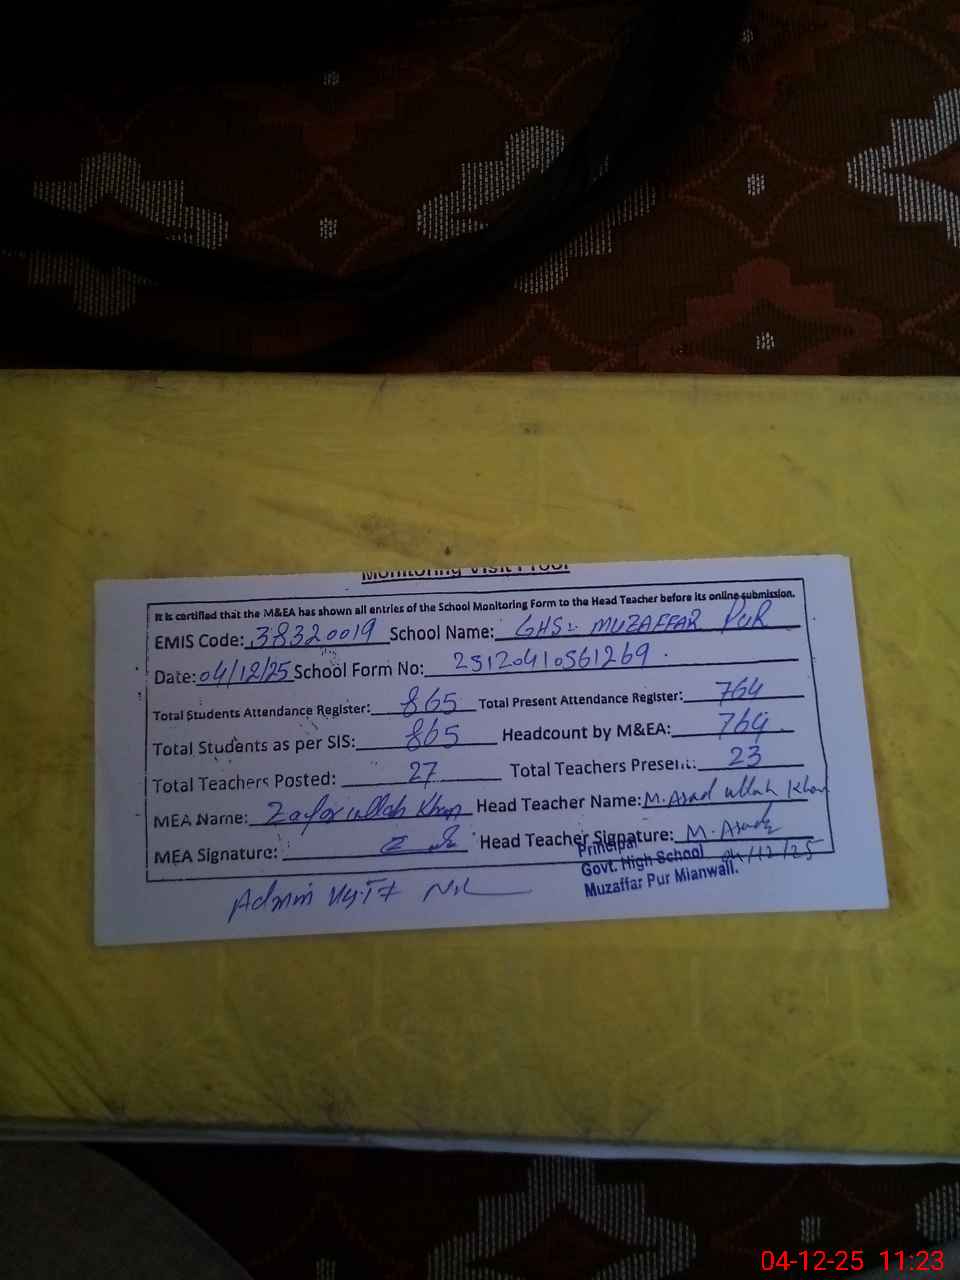 Monitoring Visit Proof
It is certified that the M&EA has shown all entries of the School Monitoring Form to the Head Teacher before its online submission.
EMIS Code: 38320019 School Name: GHS: MUZAFFAR PUR
Date: 04/12/25 School Form No: 25120410561269
Total Students Attendance Register: 865 Total Present Attendance Register: 764
Total Students as per SIS: 865 Headcount by M&EA: 764
Total Teachers Posted: 27 Total Teachers Present: 23
MEA Name: Zafar ullah Khan Head Teacher Name: M. Asad ullah Khan
MEA Signature: Head Teacher Signature: M. Asad
04/12/25
Principal
Govt. High School
Muzaffar Pur Mianwali.
Admin Visit Nil
04-12-25 11:23